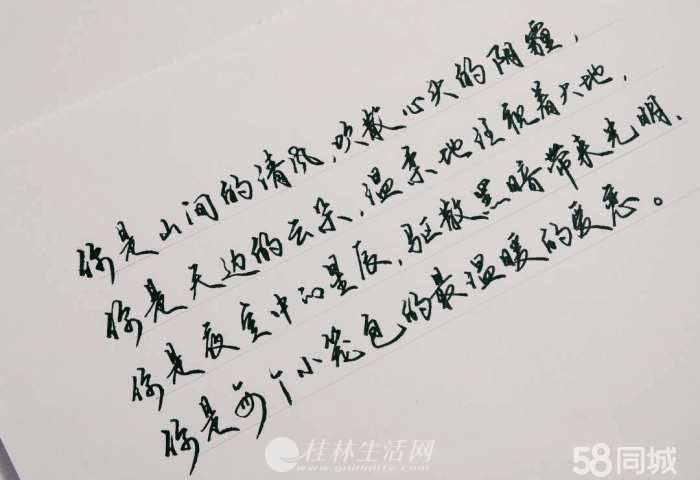 你是山间的清风，吹散心头的阴霾，
你是天边的云朵，温柔地注视着大地，
你是夜空中的星辰，驱散黑暗带来光明，
你是每个小笼包的最温暖的爱恋。
桂林生活网
www.guilinlife.com
58同城